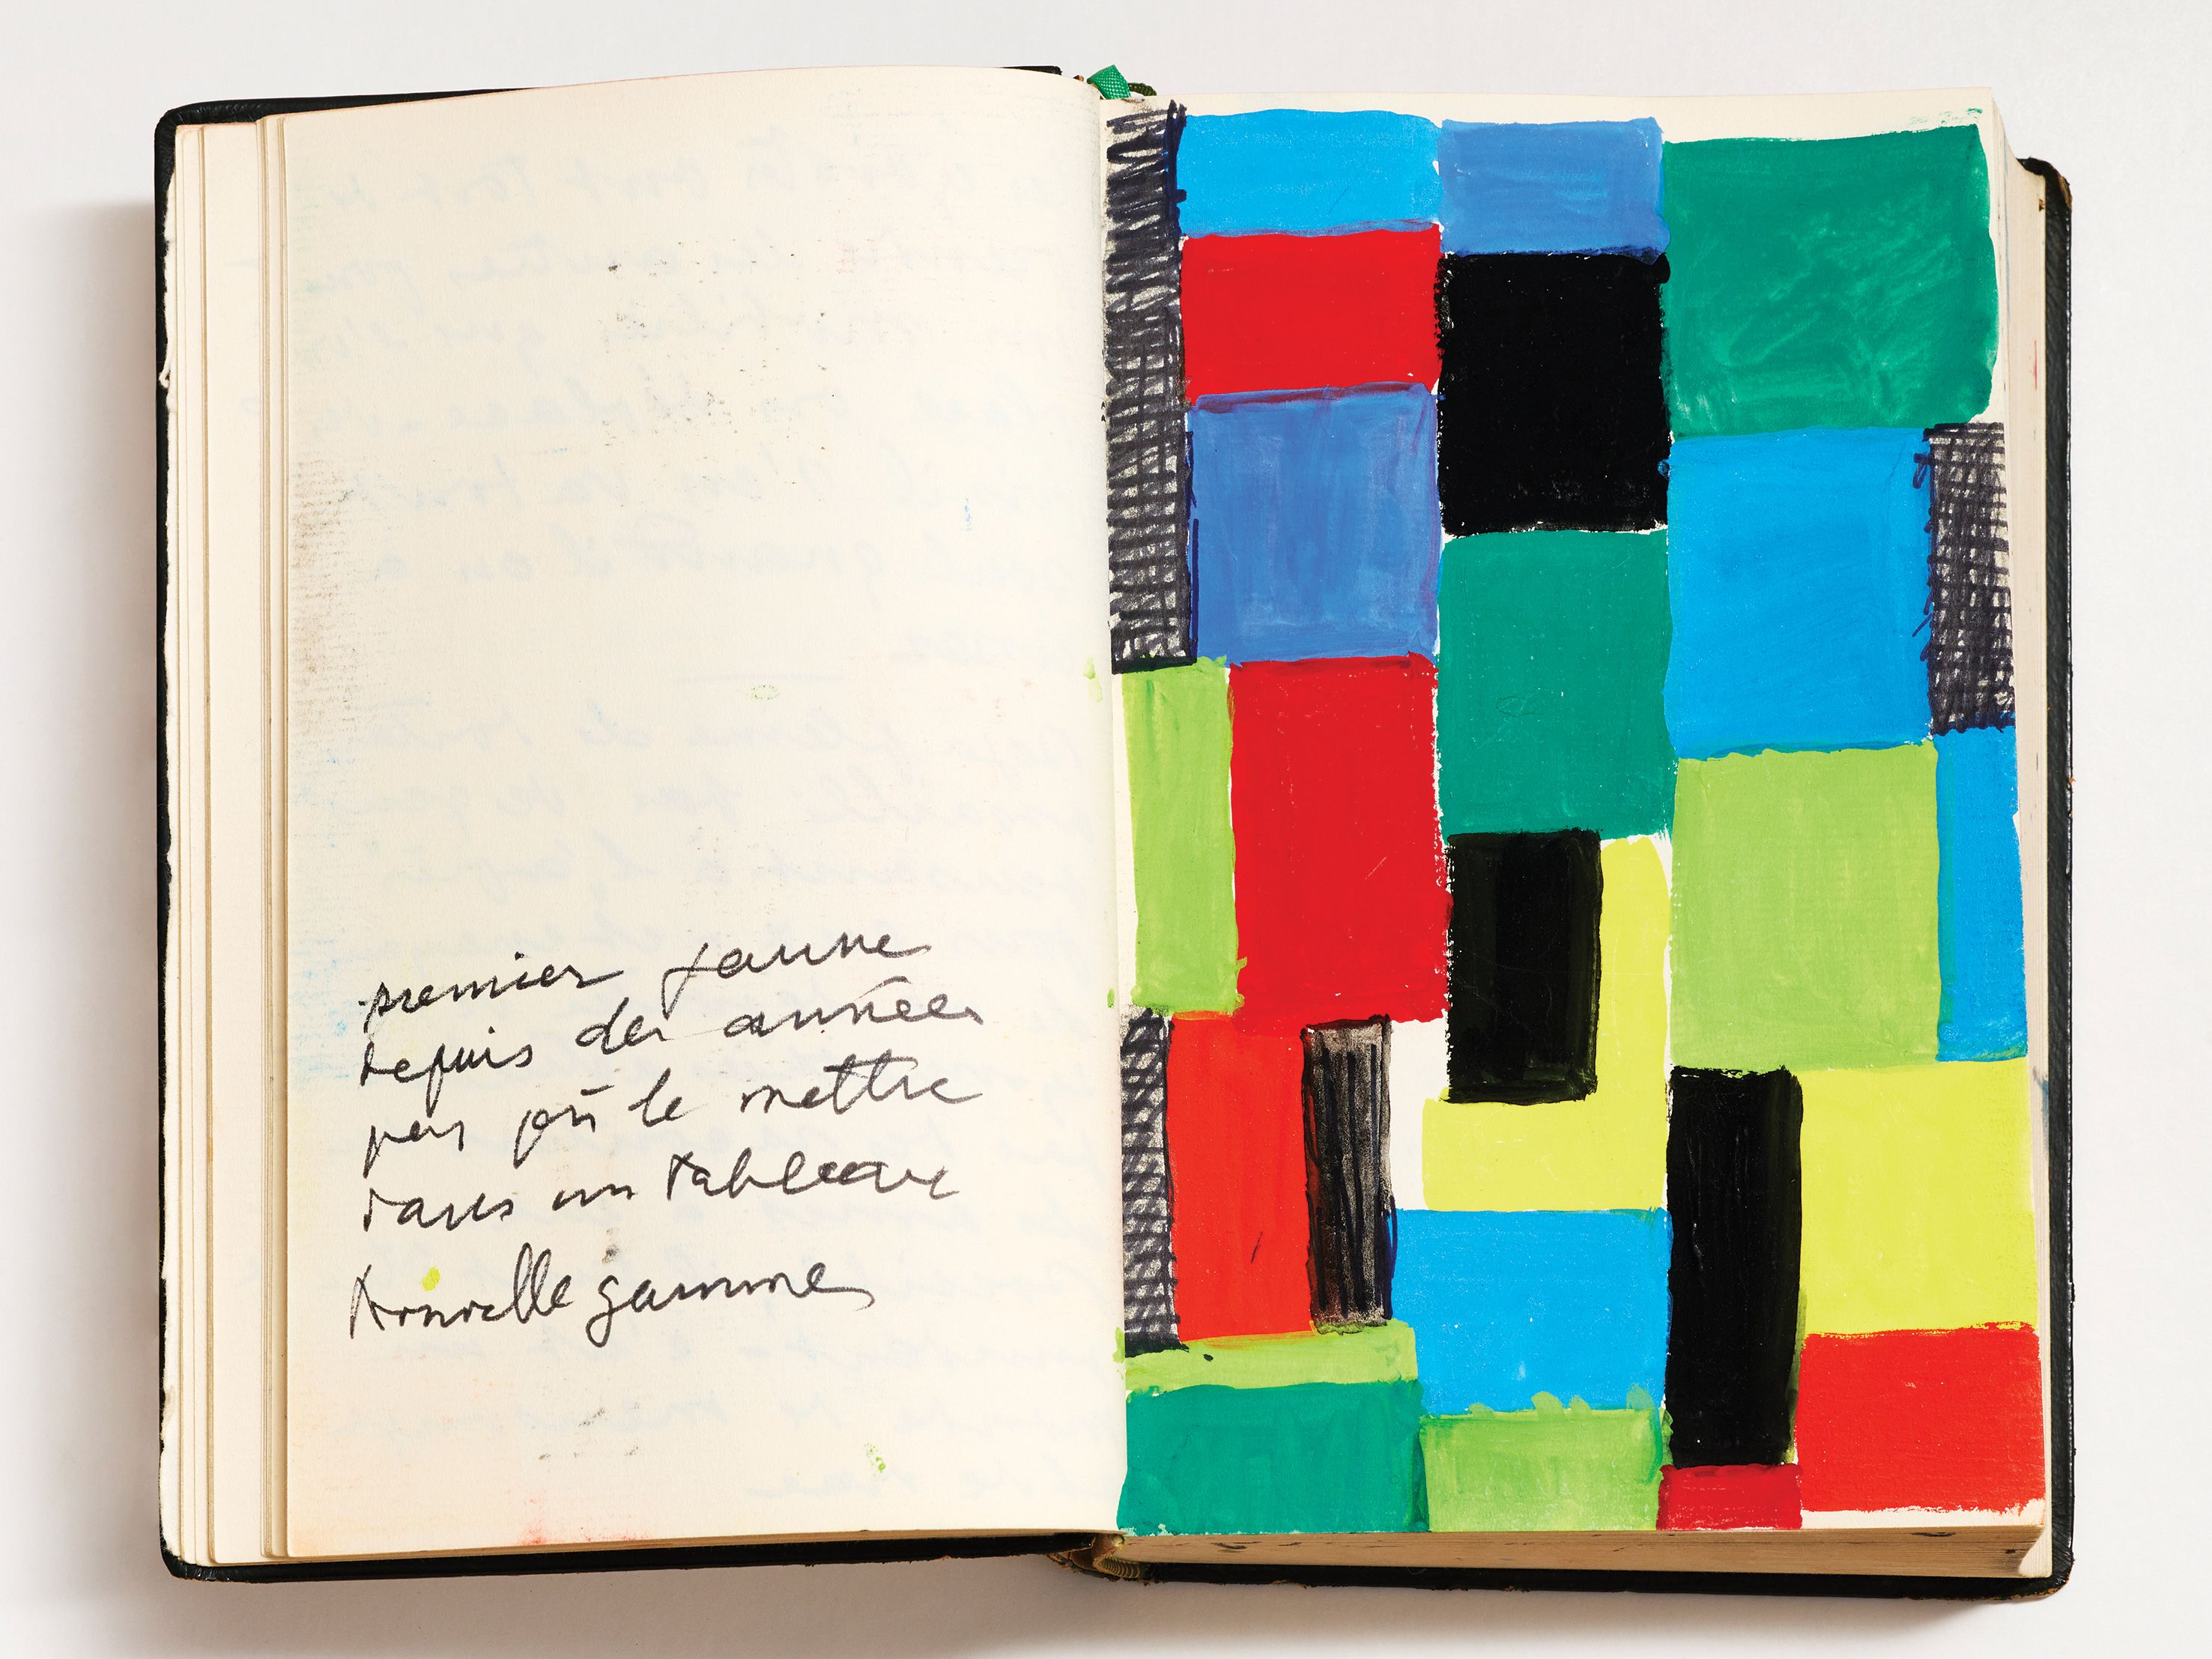 premier jaune
depuis des années
pas pû le mettre
dans un tableau
Nouvelle gamme